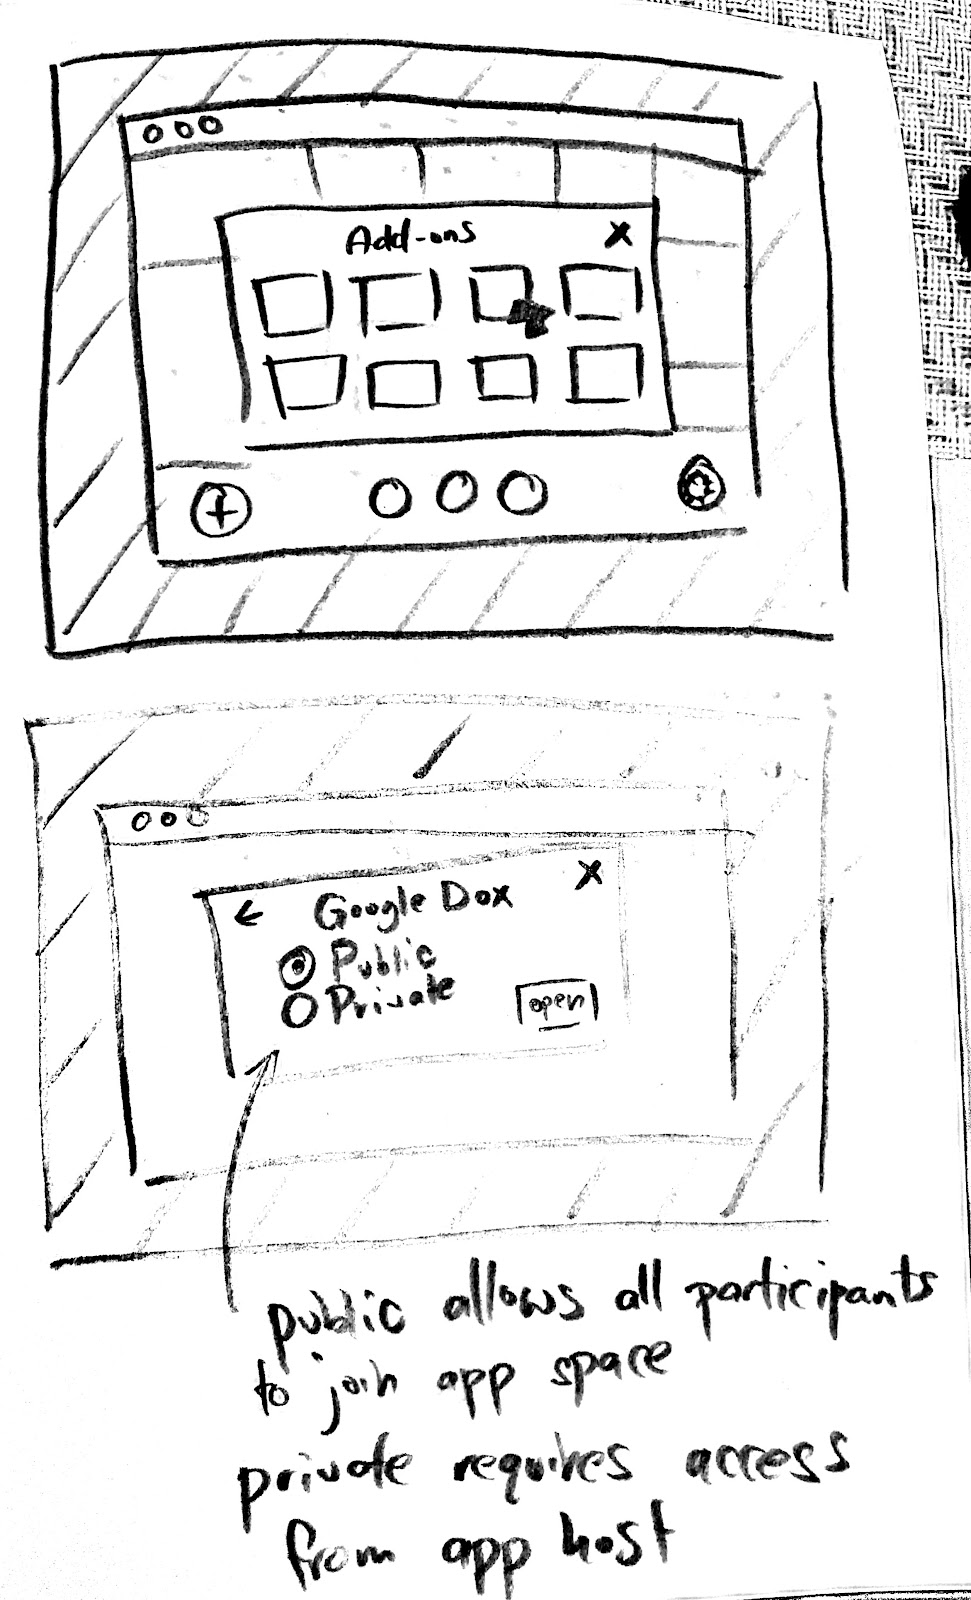 Add-ons X
← Google Dox X
Public
Private
open
public allows all participants
to join app space
private requires access
from app host